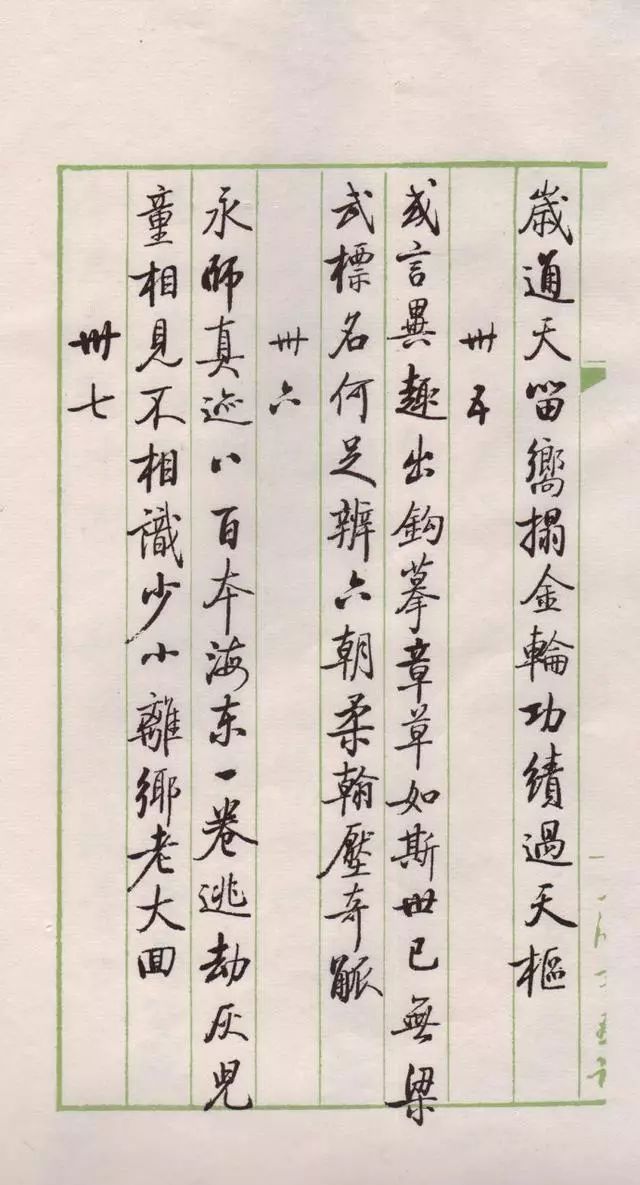 歲通天留嚮搨金輪功績過天樞
卅五
或言異趣出鈎摹章草如斯世已無梁
武標名何足辨六朝柔翰壓奇觚
卅六
永師真迹八百本海东一卷逃劫灰兒
童相見不相識少小離鄉老大囬
卅七